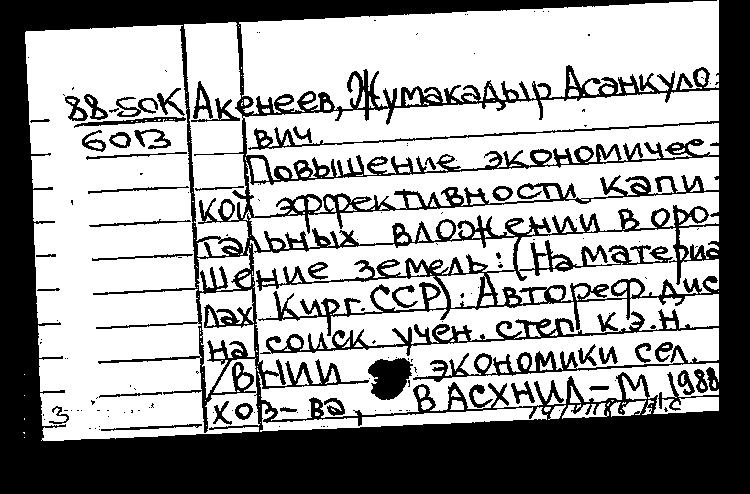 88-50К Акенеев, Жумакадыр Асанкуло-
6013 вич.
Повышение экономичес-
кой эффективности капи-
тальных вложении в оро-
шение земель: (На материа
лах Кирг. ССР): Автореф. дис
на соиск. учен. степ. к.э.н.
/ВНИИ экономики сел.
3 хоз-ва, ВАСХНИЛ.-М, 1988